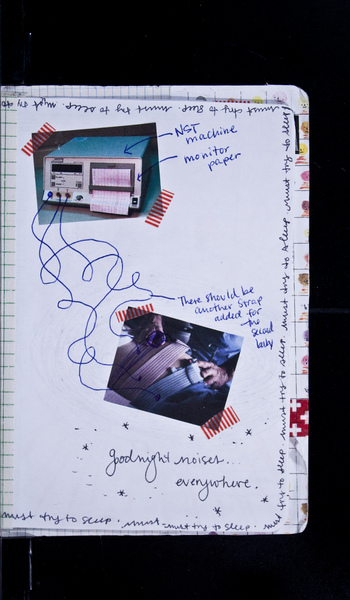 must try to sleep. must try to sleep. must try to sleep.
must try to sleep. must try to sleep. must try to sleep. must try to sleep. must try to sleep.
NST
machine
monitor
paper
There should be
another strap
added for
the
second
baby
goodnight noises...
everywhere.
must try to sleep. must try to sleep.